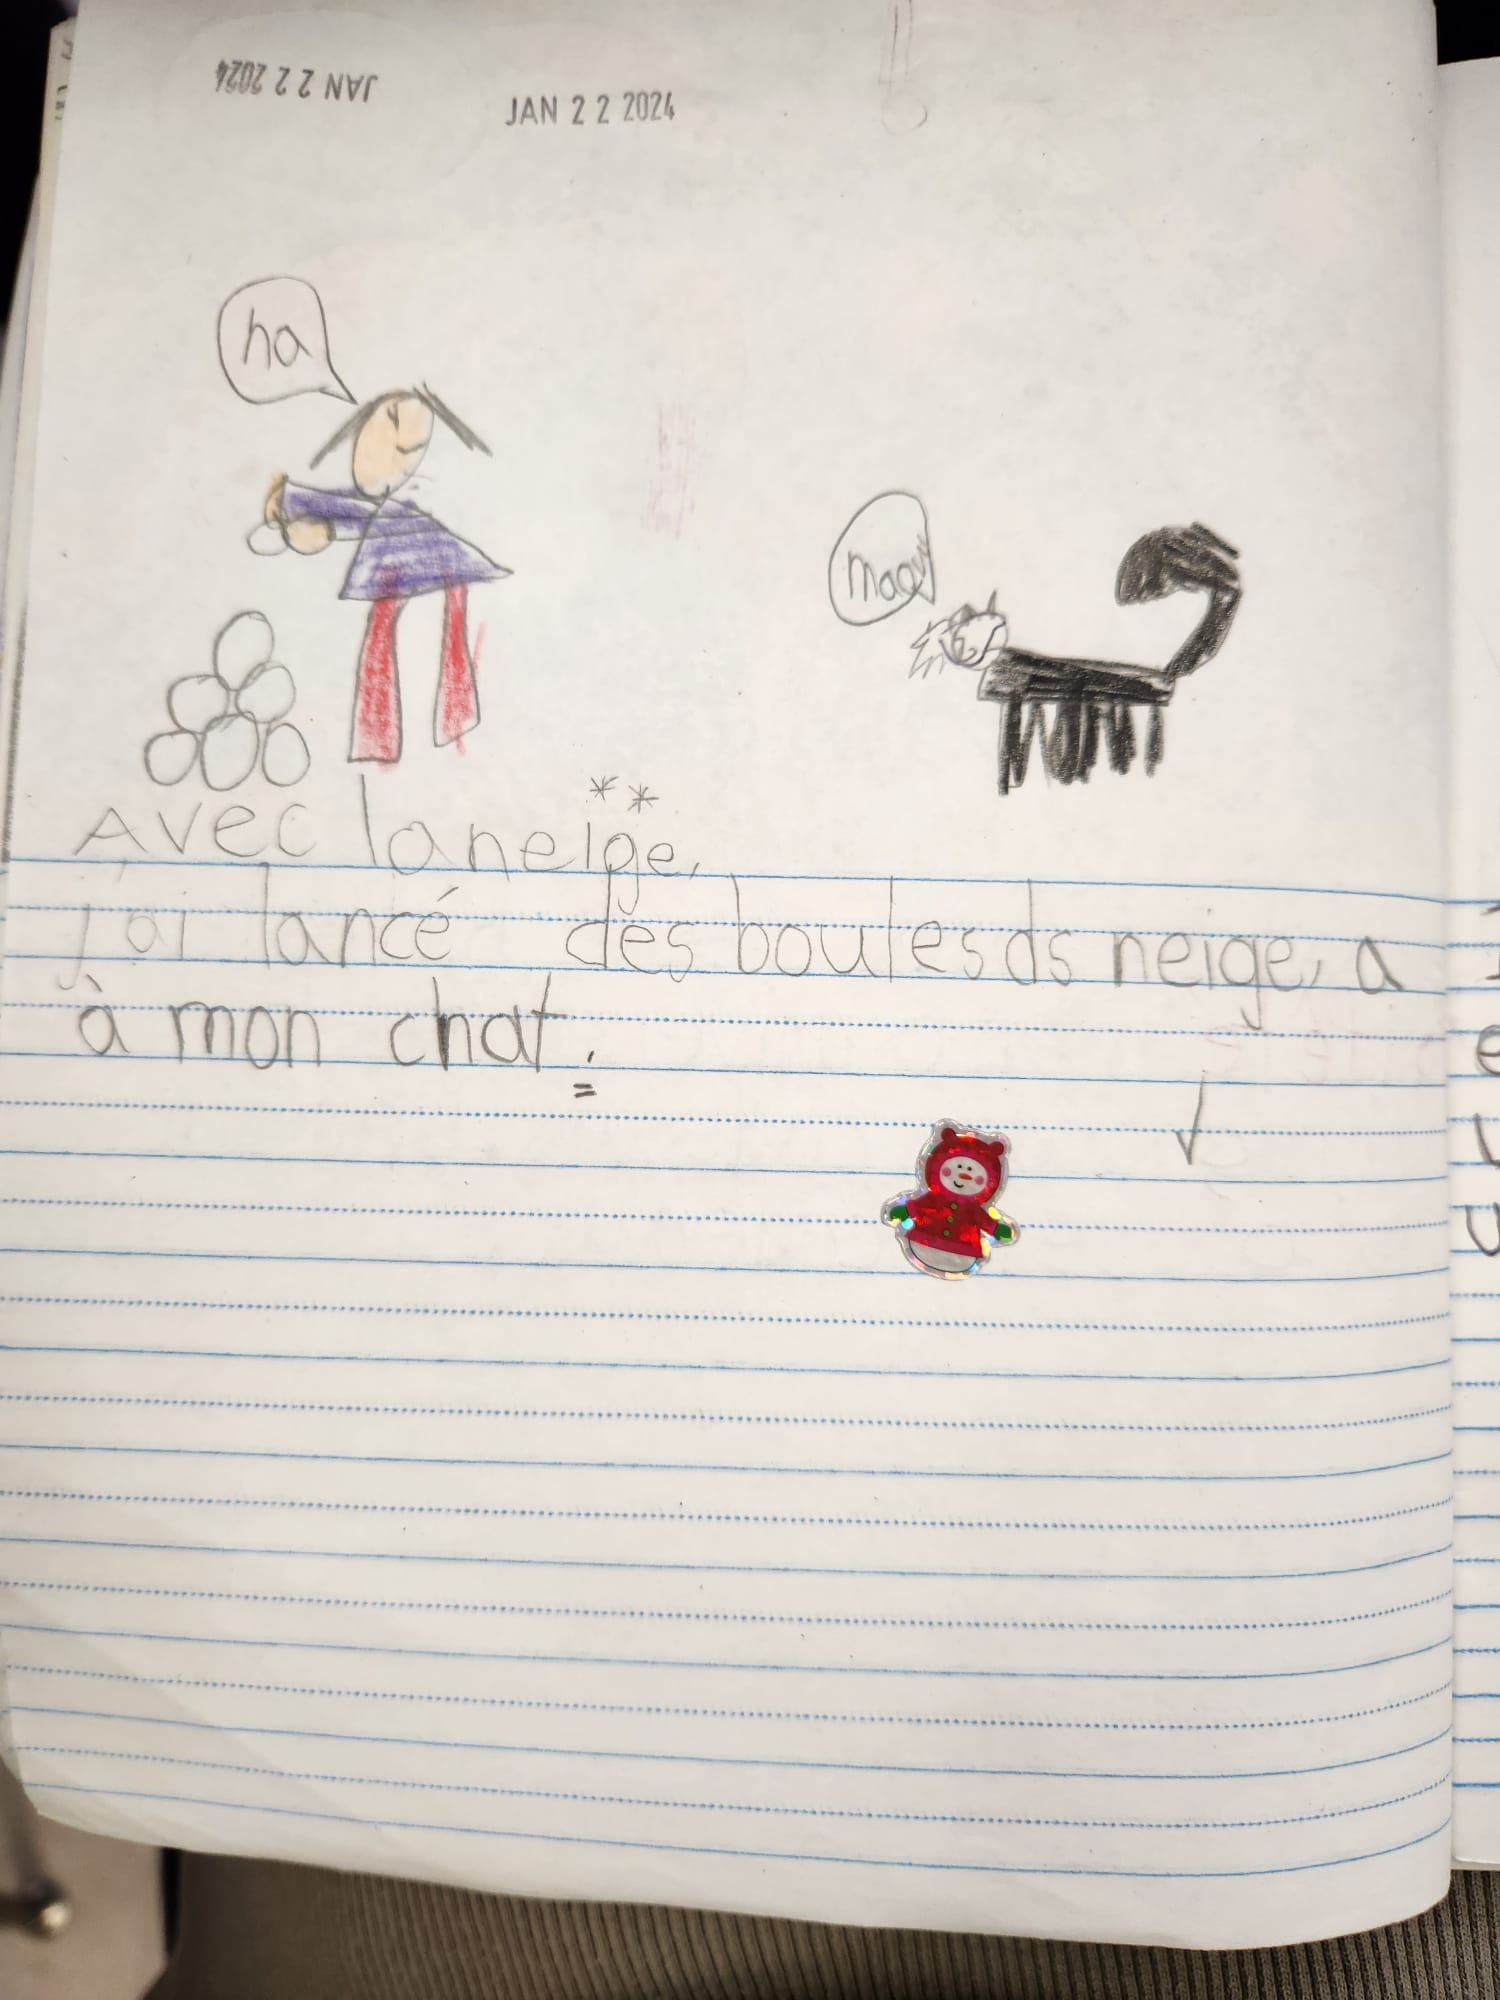 JAN 2 2 2024
JAN 2 2 2024
ha
maow
Avec la neige,
j'ai lancé des boules ds neige, a
à mon chat.